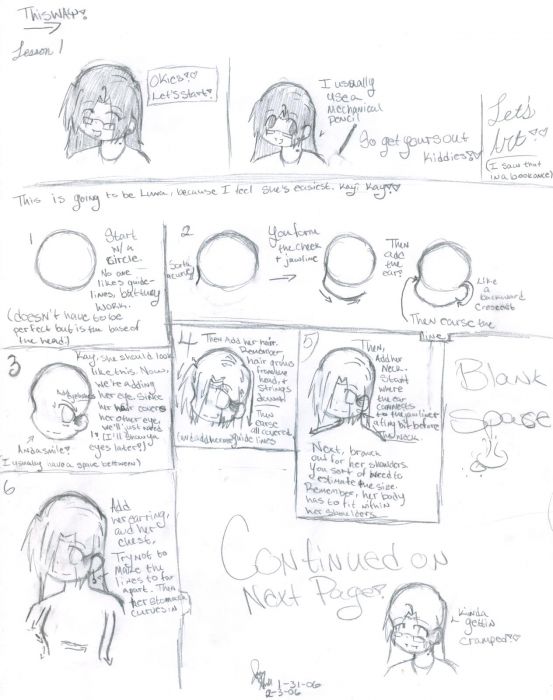 This way!
Lesson 1
Okies?♡
Let's start!
I usually
use a
mechanical
pencil
So get yours out
kiddies!♡
Let's
(I saw that
in a book once)
This is going to be Luna, because I feel she's easiest. Kay? Kay!♡
1
Start
w/a
circle.
No one
likes guide-
lines, but they
work.
(doesn't have to be
perfect but is the base of
the head!)
2
Sorta
a curve
You form
the cheek
+ jawline
Then
add
the
ear!
Like
a
backward
crescent
Then earse the
line!
3
Kay, she should look
like this. Now,
we're adding
her eye. Since
her hair covers
her other eye,
we'll just
(I'll draw ya
eyes later!)
And a smile!
(I usually have a space between)
4
Then Add her hair.
Remember,
hair grows
from the
head, +
strings
down!
Then
earse
all covered
guide lines
5
Then,
Add her
Neck.
Start
where
the ear
connects
to the
a tiny bit before
the neck
Next, branch
out for her shoulders.
You sort of need to
estimate the size.
Remember, her body
has to fit within
her shoulders
Blank
Spase
6
Add
her earring,
and her
chest.
Try not to
make the
lines to far
apart. Then
her stomach
curves in
Continued on
Next Page!
Kinda
gettin
cramped?♡
1-31-06
2-3-06